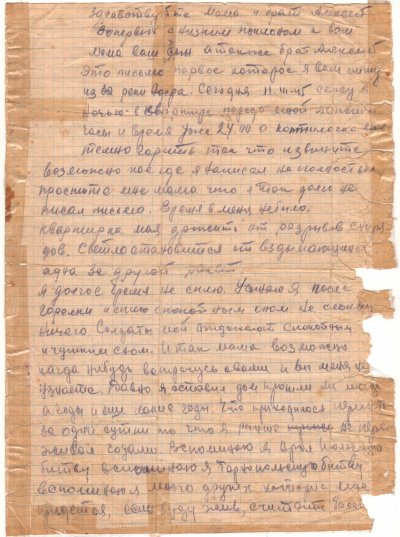 Здравствуйте мама и брат Алексей
Впервых с низким поклоном к вам
мама ваш сын а также брат Алексей
Это письмо первое которое я вам пишу
из за реки Одра. Сегодня 11.III.45 сежу я
ночью в квартире передо мной
часы и время уже 24.00 а коптилочка
темно горить так что извините
возможно кое где я написал не полностью
простите мне мама что я так долго не
писал письма. Время в меня небыло
квартирка моя дрожить от разрывов снаря
дов. Светло становится от вздымающихся
одна за другой ракет
я долгое время не сплю. Усныю я после
горелки и сплю спокойным сном не слышу
ничего Солдаты мои отдыхают спокойным
и чутким сном. И так мама возможно
когда нибудь вопрошусь с вами и вы меня не
узнаете. Давно я оставил дом прошли не месяца
а годы и еще какие годы. Что приходилось
за одни сутки то что я раньше не пере
живал годами. Вспоминаю я
битву вспоминаю я Тарнопольскую битву
вспоминаю я много других которые мне
придется, если буду жив, считать